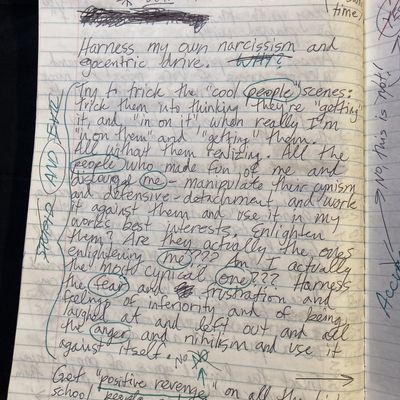 time)
Harness my own narcissism and
egocentric drive. WHY?
Try to trick the "cool people" scenes:
trick them into thinking they're "getting"
it, and "in on it" when really I'm
"in on them" and "getting" them.
All without them realizing. All the
people who made fun of me and
me - manipulate their cynism
and defensive-detachment and work
it against them and use it in my
works best interests. enlighten
them? Are they actually the ones
enlightening me??? Am I actually
the most cynical one??? Harness
the fear and frustration and
feelings of inferiority and of being
laughed at and left out and all
the anger and nihilism and use it
against itself. No
Get "positive revenge" on all the
school people
STUPID AND EVIL
NO, this is not!!